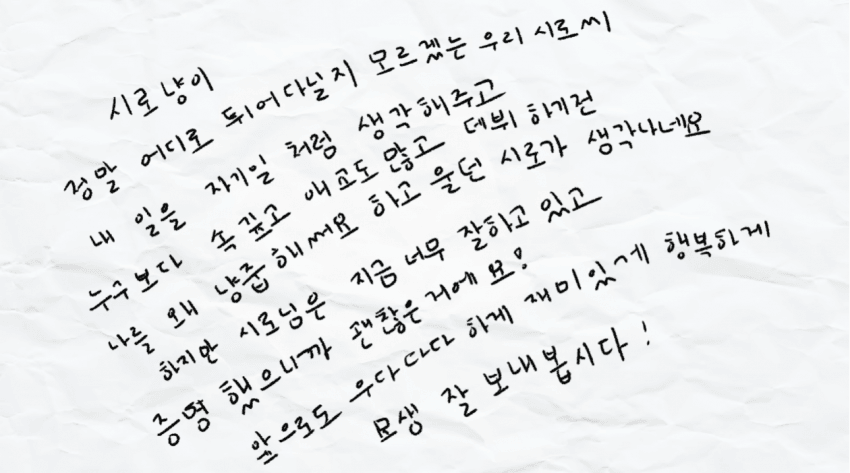 시로냥이
정말 어디로 튀어다닐지 모르겠는 우리 시로씨
내 일을 자기일 처럼 생각해주고
누구보다 속 깊고 애교도 많고 데뷔 하기전
나를 왜 냥줍해써요 하고 울던 시로가 생각나네요
하지만 시로님은 지금 너무 잘하고 있고
증명 했으니까 괜찮은거에요!
앞으로도 우다다다 하게 재미있게 행복하게
묘생 잘 보내봅시다!